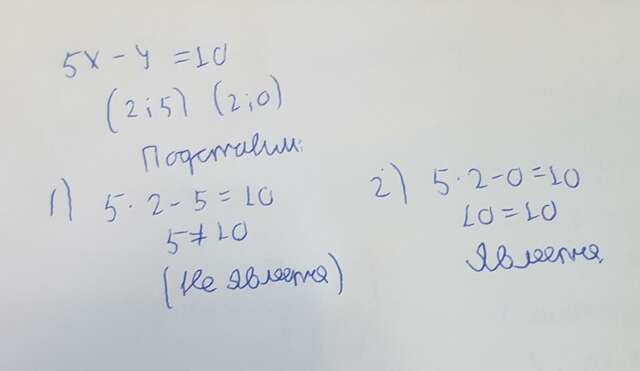 5x - y = 10
(2; 5) (2; 0)
Подставим:
1) 5 · 2 - 5 = 10
5 ≠ 10
(Не является)
2) 5 · 2 - 0 = 10
10 = 10
Является